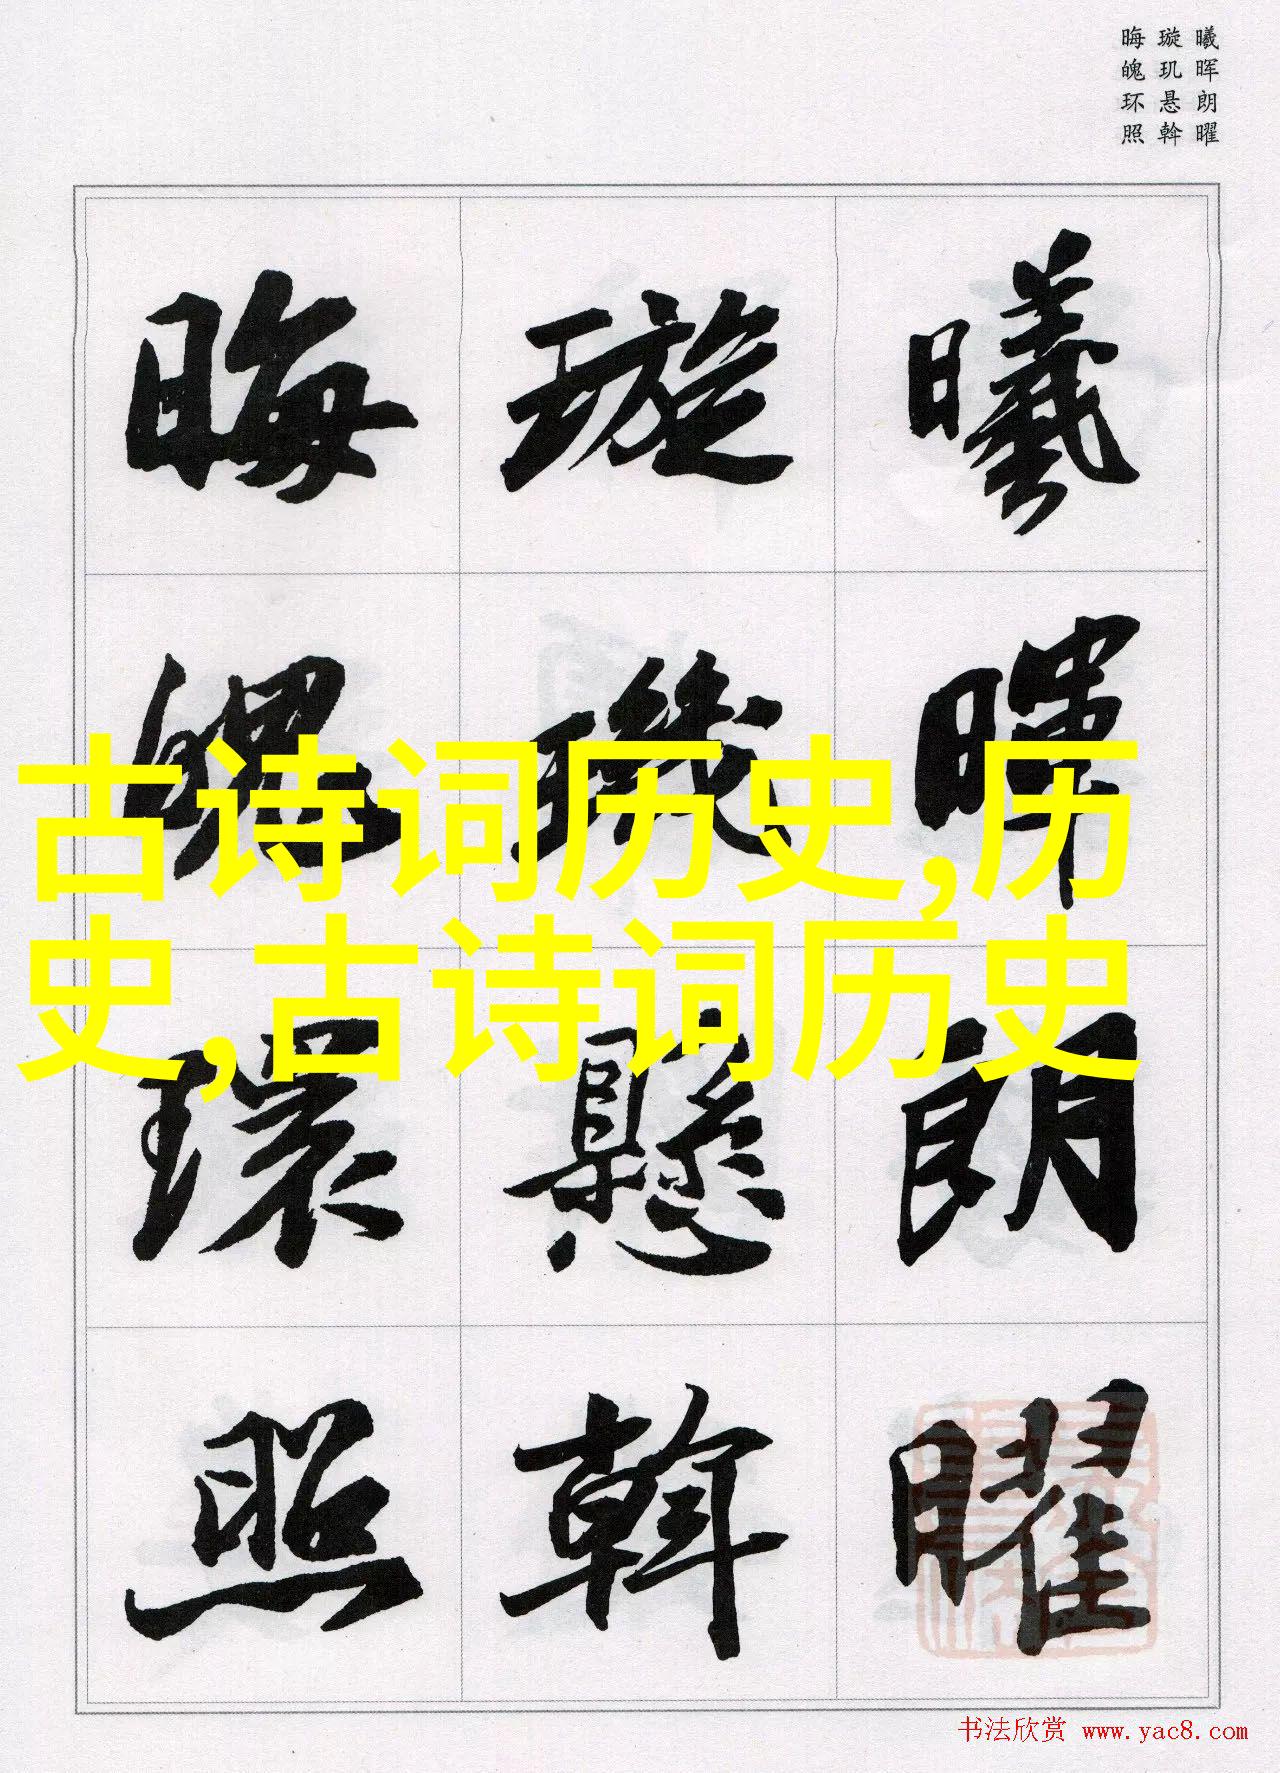 曦晖朗曜
璇玑悬斡
晦魄环照
曦暉朗曜
璇璣懸斡
晦魄環照
古诗词历史,历
史,古诗词历史
书法欣赏 www.yac8.com